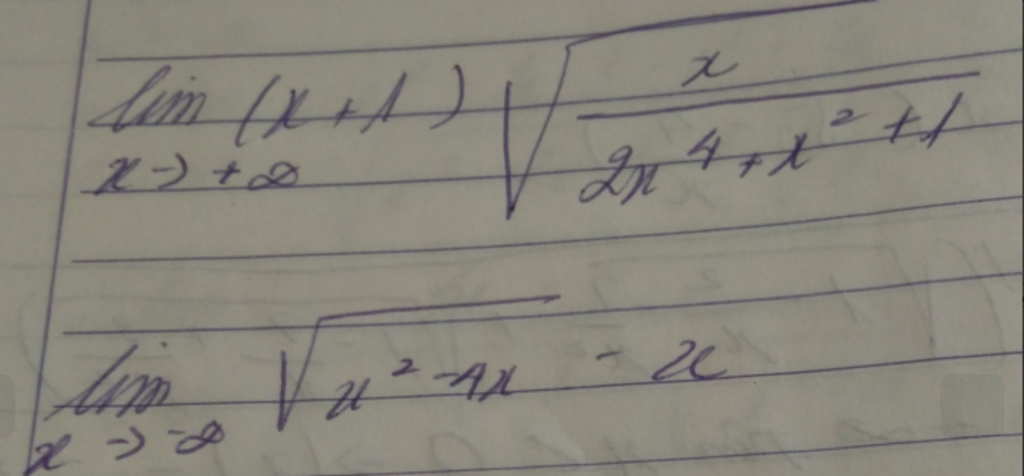 lim (x+1) √(x / (2x⁴ + x² + 1))
x → +∞
lim √(x² - 4x) - x
x → -∞